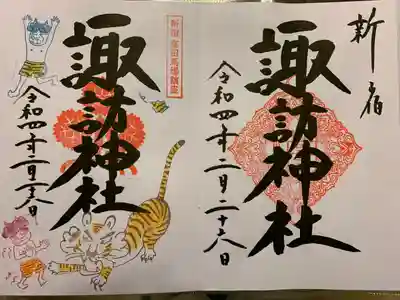 新宿
諏訪神社
令和四年二月二十六日
新宿 高田馬場鎮座
諏訪神社
令和四年二月二十六日